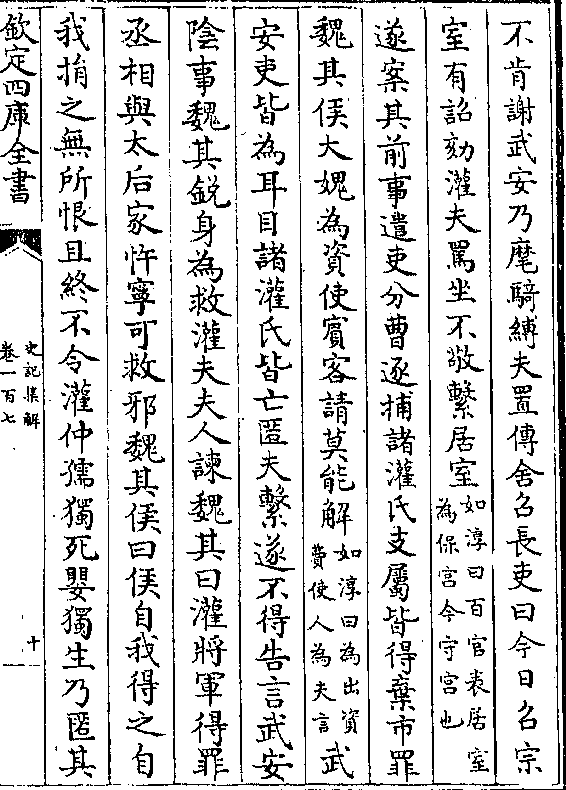 不肯謝武安乃麾騎縛夫置傳舍召長吏曰今日召宗
室有詔劾灌夫罵坐不敬繫居室如淳曰百官表居室為保宫今守宫也
遂案其前事遣吏分曹逐捕諸灌氏支屬皆得棄市罪
魏其侯大媿為資使賓客請莫能解如淳曰為出資費使人為夫言武
安吏皆為耳目諸灌氏皆亡匿夫繫遂不得告言武安
陰事魏其鋭身為救灌夫夫人諫魏其曰灌將軍得罪
丞相與太后家忤寧可救邪魏其侯曰侯自我得之自
我捐之無所恨且終不令灌仲孺獨死嬰獨生乃匿其
欽定四庫全書
史記集解
卷一百七
十